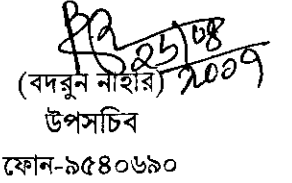 ২৬/০৪
২০০৭
(বদরুন নাহার)
উপসচিব
ফোন-৯৫৪০৬৯০